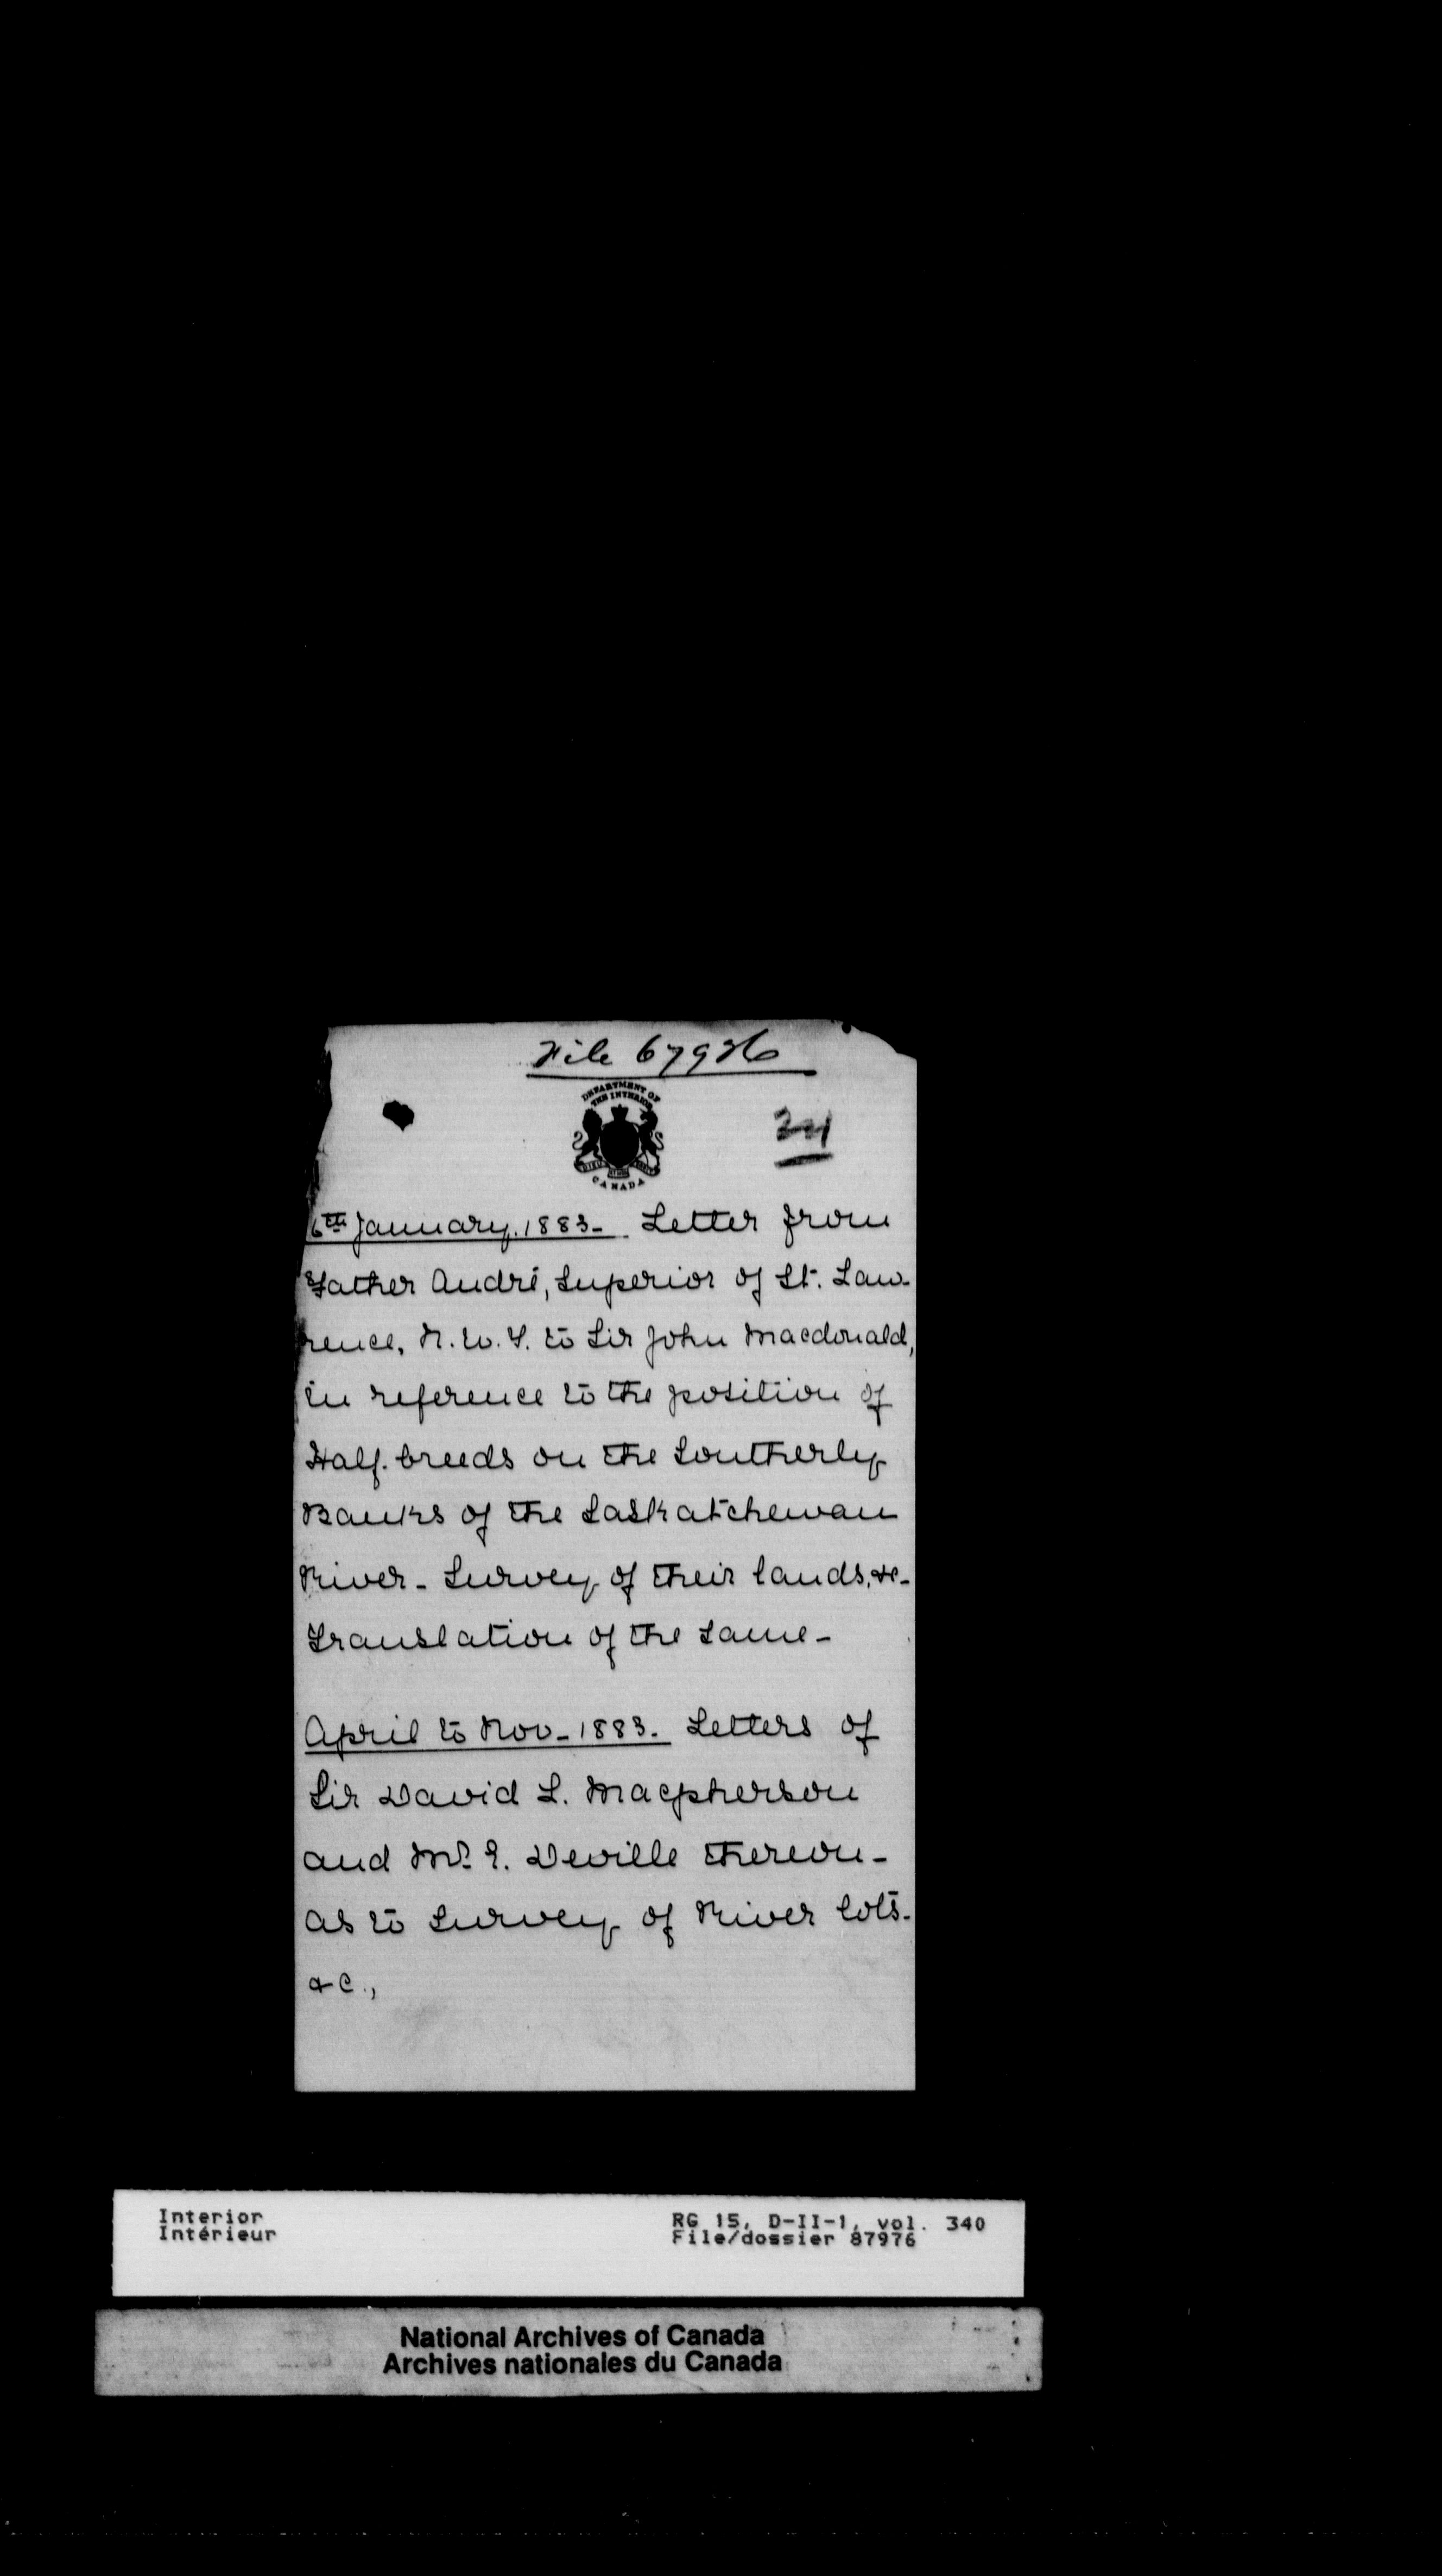 File 67926
DEPARTMENT OF
THE INTERIOR
CANADA
6th January. 1883- Letter from
Father André, Superior of St. Law-
rence, N. W. T. to Sir John Macdonald,
in reference to the position of
Half-breeds on the Southerly
Banks of the Saskatchewan
River - Survey of their lands, &c -
Translation of the same -
April to Nov- 1883. Letters of
Sir David L. Macpherson
and Mr. E. Deville thereon -
as to Survey of River lots -
&c.,
Interior
Intérieur
RG 15, D-II-1, vol. 340
File/dossier 87976
National Archives of Canada
Archives nationales du Canada